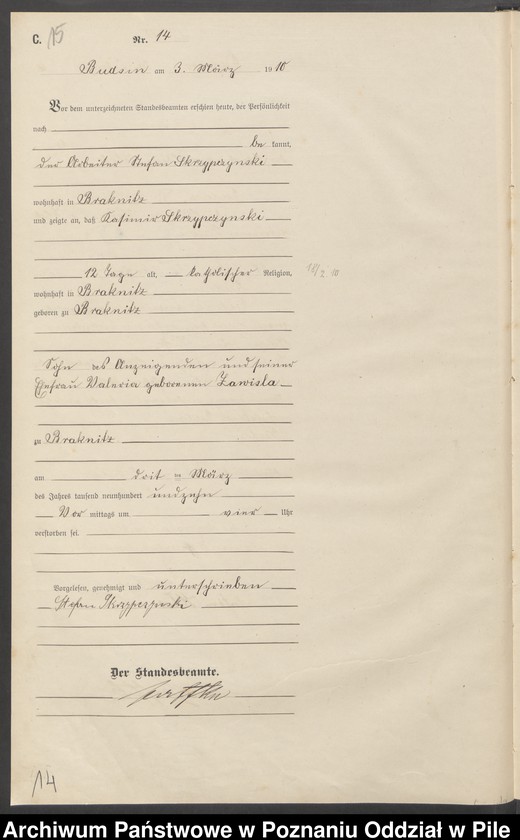 C. 15 Nr. 14
Budsin am 3. März 1910
Vor dem unterzeichneten Standesbeamten erschien heute, der Persönlichkeit
nach
be kannt,
der Arbeiter Stefan Skrzypczynski
wohnhaft in Braknitz
und zeigte an, daß Kasimir Skrzypczynski
12 Tage alt, katholischer Religion, 18/2 10
wohnhaft in Braknitz
geboren zu Braknitz
Sohn des Anzeigenden und seiner
Ehefrau Valeria geborenen Zawisla
zu Braknitz
am drit en März
des Jahres tausend neunhundert undzehn
Vor mittags um vier Uhr
verstorben sei.
Vorgelesen, genehmigt und unterschrieben
Stefan Skrzypczynski
Der Standesbeamte.
14
Archiwum Państwowe w Poznaniu Oddział w Pile